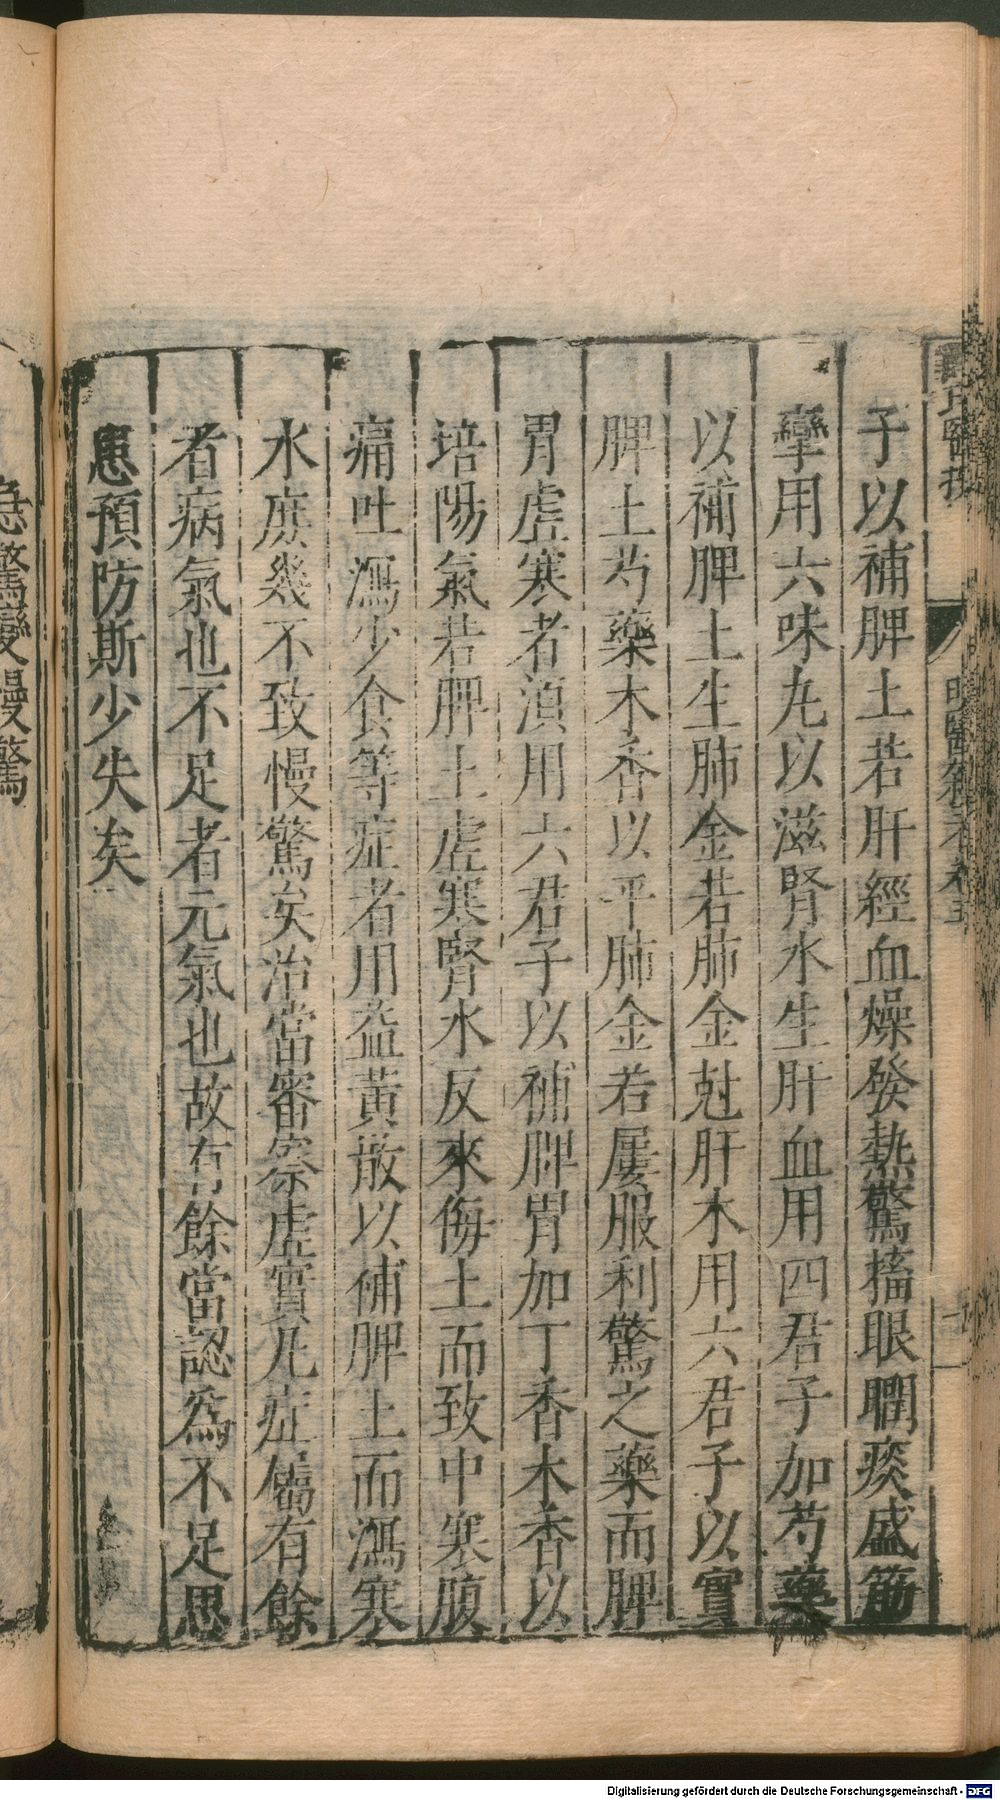 子以補脾土若肝經血燥發熱驚搐眼瞤痰盛筋
攣用六味丸以滋腎水生肝血用四君子加芍藥
以補脾土生肺金若肺金尅肝木用六君子以實
脾土芍藥木香以平肺金若屢服利驚之藥而脾
胃虛寒者須用六君子以補脾胃加丁香木香以
培陽氣若脾土虛寒腎水反來侮土而致中寒腹
痛吐瀉少食等症者用益黃散以補脾土而瀉寒
水庶幾不致慢驚矣治當審察虛實凡症屬有餘
者病氣也不足者元氣也故有餘當認為不足思
患預防斯少失矣
急驚變慢驚
Digitalisierung gefördert durch die Deutsche Forschungsgemeinschaft - DFG